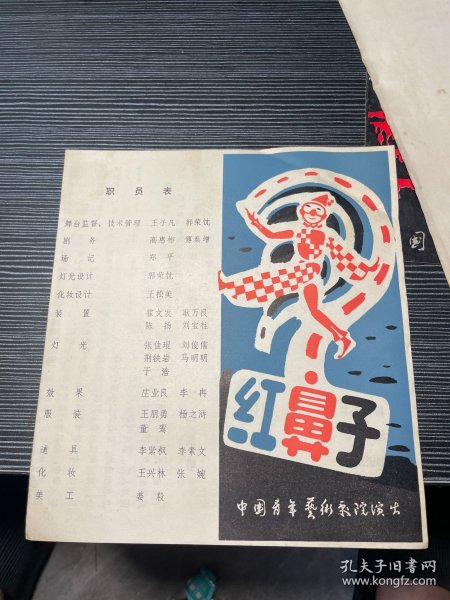 职员表
舞台监督、技术管理 王子凡 郭荣忱
剧务 高惠彬 傅秦增
场记 郑平
灯光设计 郭荣忱
化妆设计 王松美
装置 霍文发 耿万良
陈扬 刘宝柱
灯光 张佳琨 刘俊儒
荆铁岩 马明明
于浩
效果 庄业良 李冉
服装 王朋勇 杨之浒
董鸾
道具 李紫枫 李素文
化妆 王兴林 张婉
美工 娄毅
红鼻子
中国青年艺术剧院演出
国
孔夫子旧书网
www.kongfz.com